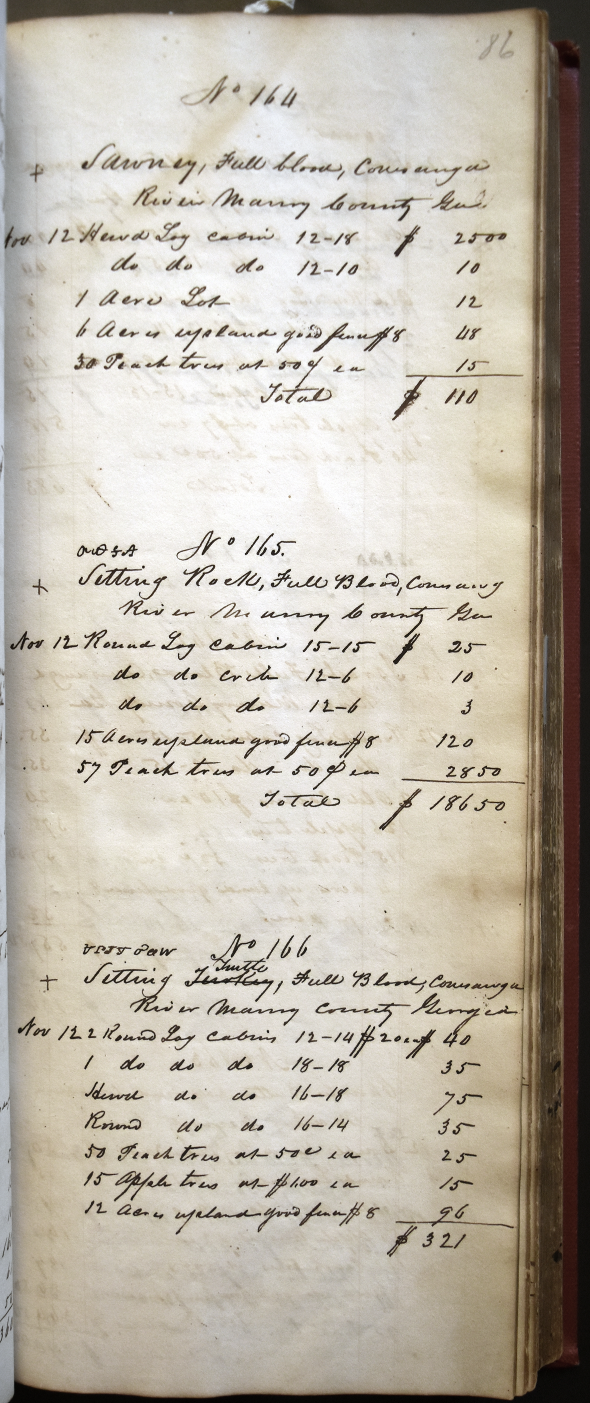 86
No 164
+ Sawney, Full blood, Conesauga
River Murry County Geo.
Nov 12 Hewd Log cabin 12-18 $ 2500
do do do 12-10 10
1 Acre Lot 12
6 Acres upland good fence $8 48
30 Peach trees at 50¢ ea 15
Total $ 110
No 165.
+ Setting Rock, Full Blood, Conesaug
River Murry County Geo
Nov 12 Round Log cabin 15-15 $ 25
do do crib 12-6 10
do do do 12-6 3
15 Acres upland good fence $8 120
57 Peach trees at 50¢ ea 2850
Total $ 18650
No 166
Turtle
+ Setting Turkey, Full Blood, Conesauga
River Murry County Georgia
Nov 12 2 Round Log cabins 12-14 $20 ea $ 40
1 do do do 18-18 35
Hewd do do 16-18 75
Round do do 16-14 35
50 Peach trees at 50c ea 25
15 Apple trees at $1.00 ea 15
12 Acres upland good fence $8 96
$ 321